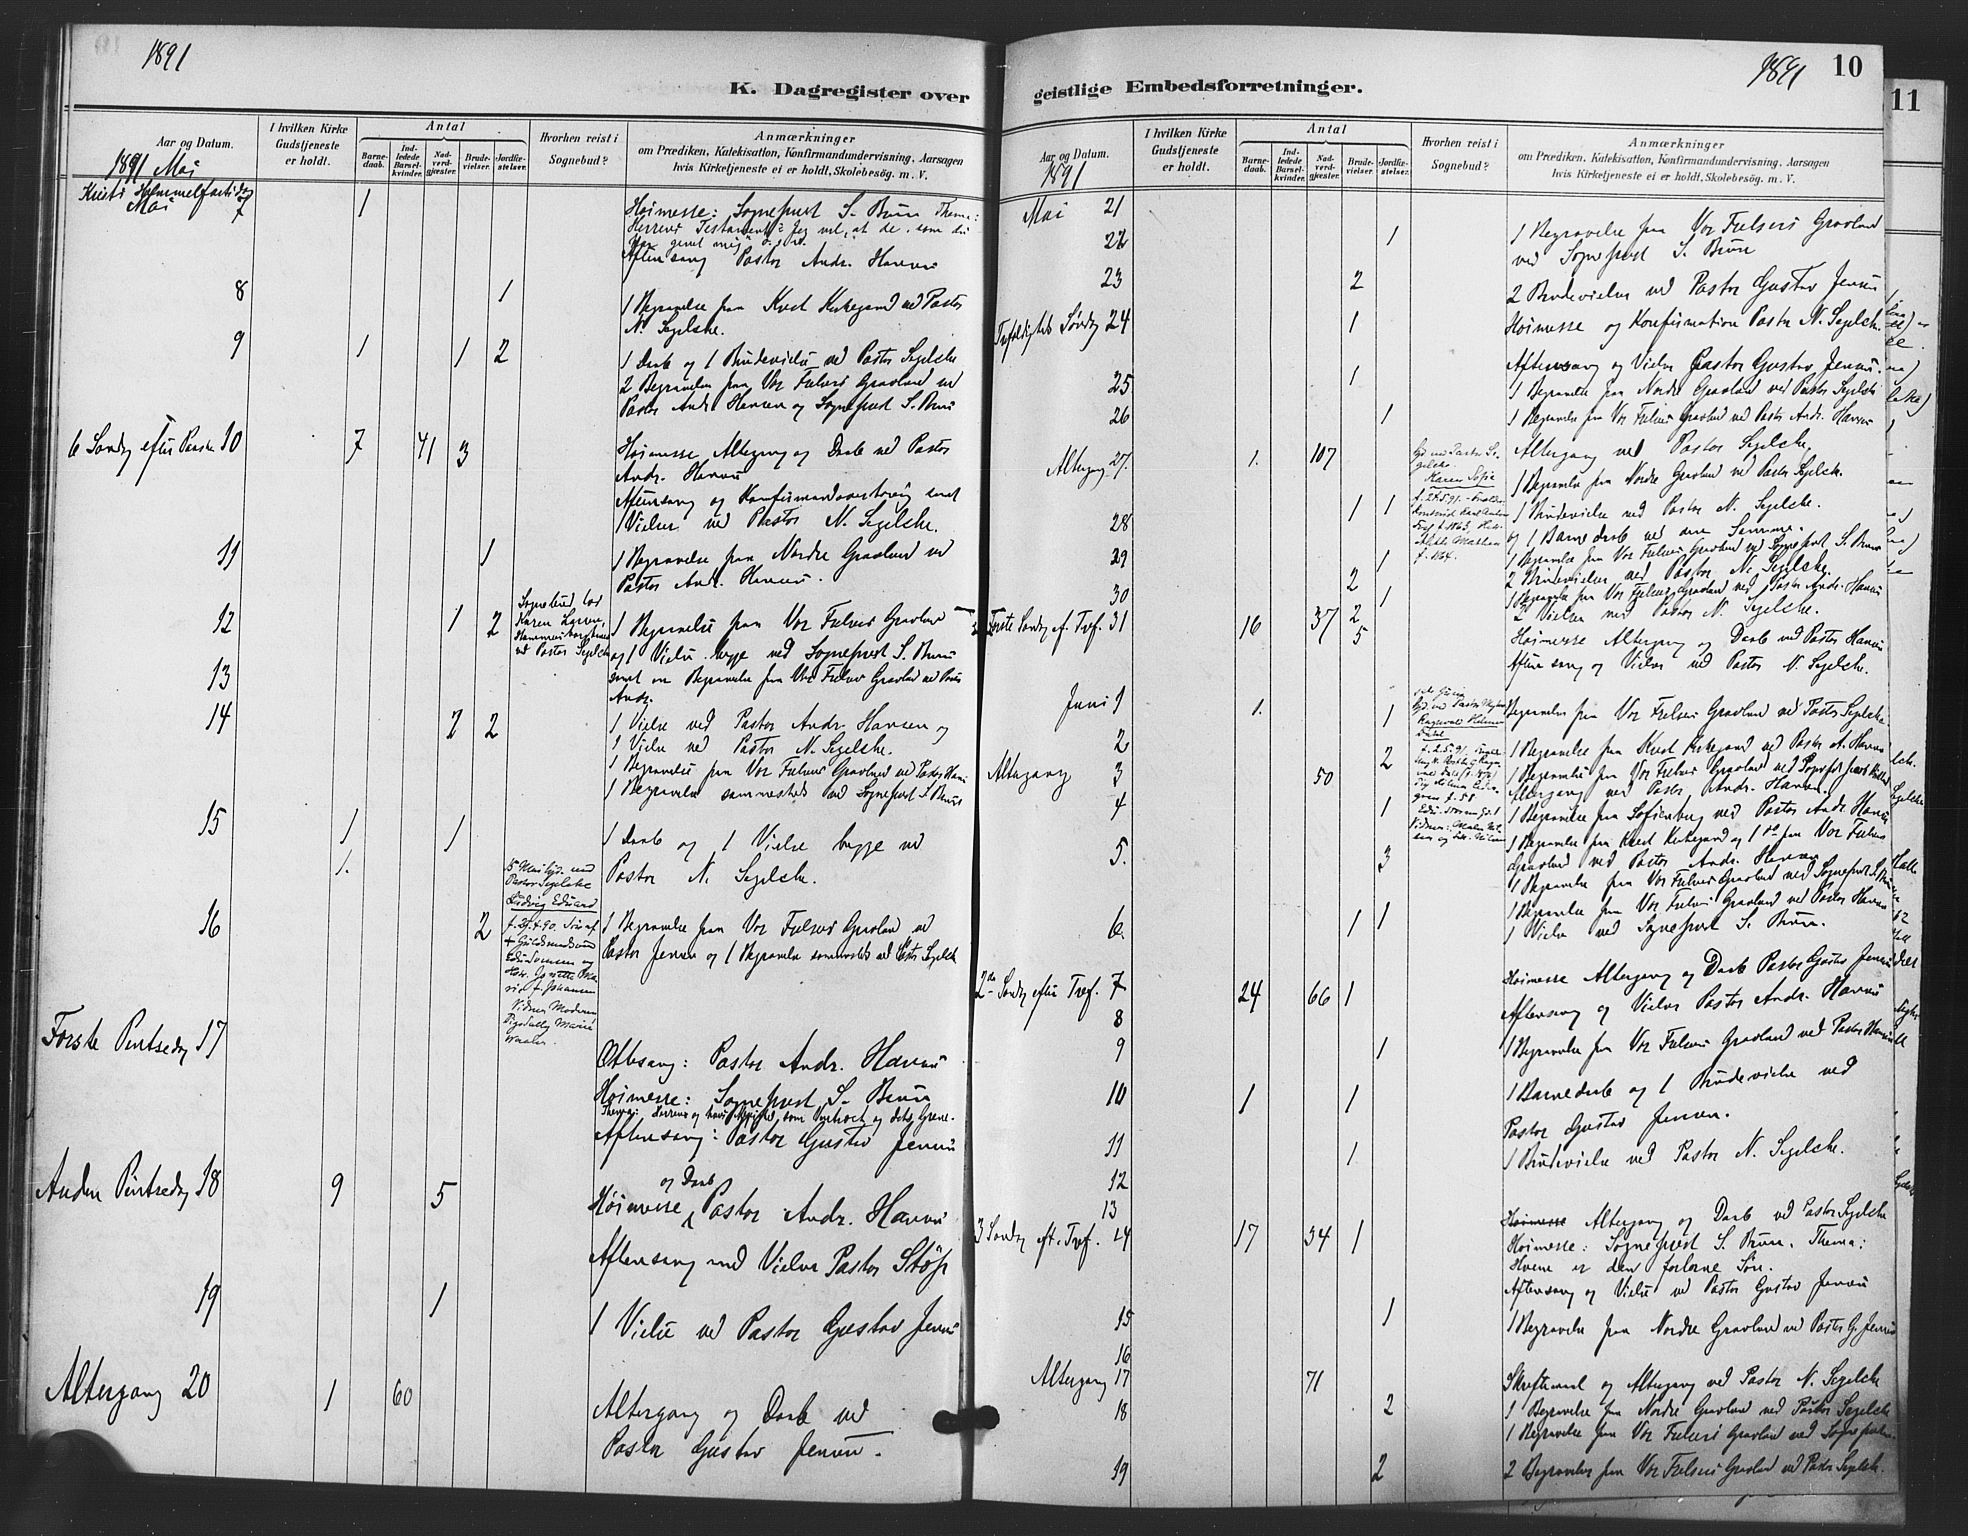 1891
K. Dagregister over
Aar og Datum.
I hvilken Kirke Gudstjeneste er holdt.
Antal
Barnedaab.
Indledede Barselkvinder.
Nadverdgjæster.
Brudevielser.
Jordfæstelser.
Hvorhen reist i Sognebud?
Anmærkninger
om Prædiken, Katekisation, Konfirmandundervisning, Aarsagen
hvis Kirketjeneste ei er holdt, Skolebesøg. m. V.
1891 Mai
Kristi Himmelfartsdag
Mai 7 1 Høimesse: Sognepræst S. Brun Thema:
Herrens Testament: Jeg vil, at de, som du
har givet mig o. s. v.
Aftensang Pastor Andr. Hansen
8 1 1 Begravelse fra Krist Kirkegaard ved Pastor
N. Segelcke.
9 1 1 2 1 Daab og 1 Brudevielse ved Pastor Segelcke
2 Begravelser fra Vor Frelsers Gravlund ved
Pastor Andr Hansen og Sognepræst S. Brun
6 Søndag efter Paaske 10 7 41 3 Høimesse, Altergang og Daab ved Pastor
Andr. Hansen
Aftensang og Konfirmand samt
Vielser ved Pastor N. Segelcke.
11 1 1 Begravelse fra Nordre Gravlund ved
Pastor Andr. Hansen.
12 1 2 Sognebud hos
Karen
ved Pastor Segelcke
1 Begravelse fra Vor Frelsers Gravlund
og 1 Vielse begge ved Sognepræst S. Brun
samt en Begravelse fra Vor Frelsers Gravlund ved
Andr.
13
14 2 2 1 Vielse ved Pastor Andr. Hansen og
1 Vielse ved Pastor N. Segelcke.
1 Begravelse fra Vor Frelsers Gravlund ved Pastor Hansen
1 Begravelse sammesteds ved Sognepræst S. Brun
15 1 1 1 Daab og 1 Vielse begge ved
1. Pastor N. Segelcke.
15 Mai hjd. ved
Pastor Segelcke
Ludvig Eduard
16 2 1 Begravelse fra Vor Frelsers Gravlund ved
Pastor Jensen og 1 Begravelse sammesteds ved Pastor Segelcke
Første Pintsedag 17
Ottesang: Pastor Andr. Hansen
Høimesse: Sognepræst S. Brun
Aftensang: Pastor Gustav Jensen
Anden Pintsedag 18 9 5 og Daab
Høimesse Pastor Andr. Hansen
Aftensang med Vielser Pastor Støp
19 1 1 Vielse ved Pastor Gustav Jensen
Altergang 20 1 60 Altergang og Daab ved
Pastor Gustav Jensen.
1891 10
11
geistlige Embedsforretninger.
Aar og Datum.
I hvilken Kirke Gudstjeneste er holdt.
Antal
Barnedaab.
Indledede Barselkvinder.
Nadverdgjæster.
Brudevielser.
Jordfæstelser.
Hvorhen reist i Sognebud?
Anmærkninger
om Prædiken, Katekisation, Konfirmandundervisning, Aarsagen
hvis Kirketjeneste ei er holdt, Skolebesøg. m. V.
1891
Mai 21
22 1 1 Begravelse fra Vor Frelsers Gravlund
ved Sognepræst S. Brun
23 2 2 Brudevielser ved Pastor Gustav Jensen
Trefoldigheds Søndag 24 1 Høimesse og Konfirmation Pastor N. Segelcke
Aftensang og Vielse Pastor Gustav Jensen.
25 1 1 Begravelse fra Nordre Gravlund ved Pastor Segelcke
26 1 1 Begravelse fra Vor Frelsers Gravlund ved Pastor Andr. Hansen
Altergang 27. 1. 107 Altergang ved Pastor Segelcke,
1 Begravelse fra Nordre Gravlund ved Pastor Segelcke.
Karen Sofie
28 1 1 1 Brudevielse ved Pastor N. Segelcke.
og 1 Barnedaab ved den Samme.
29 1 1 Begravelse fra Vor Frelsers Gravlund ved Sognepræst S. Brun
30 2 1 2 Brudevielser ved Pastor N. Segelcke
1 Begravelse fra Vor Frelsers Gravlund ved Pastor Andr. Hansen
2 Vielser ved Pastor N. Segelcke.
Første Søndag ef. Tref. 31 16 37 2
5 Høimesse Altergang og Daab ved Pastor Hansen
Aftensang og Vielser ved Pastor N. Segelcke.
Juni 1 1. 1 Begravelse fra Vor Frelsers Gravlund ved Pastor Segelcke
2 2 1 Begravelse fra Krist Kirkegaard ved Pastor A. Hansen
1 Begravelse fra Vor Frelsers Gravlund ved
Altergang 3 50 Altergang ved Pastor Andr. Hansen.
4 1 1 Begravelse fra Sofienberg ved Pastor Andr Hansen
5. 3 1 Begravelse fra Krist Kirkegaard og 1 do fra Vor Frelsers
Gravlund ved Pastor Andr. Hansen
1 Begravelse fra Vor Frelsers Gravlund ved Sognepræst S. Brun
6. 1 1 1 Begravelse fra Vor Frelsers Gravlund ved Pastor Hansen
1 Vielse ved Sognepræst S. Brun.
2den Søndag efter Tref. 7 24 66 1 Høimesse Altergang og Daab Pastor Gustav Jensen
Aftensang og Vielse Pastor Andr. Hansen
8
9 1 1 Begravelse fra Vor Frelsers Gravlund ved Pastor Hansen
10 1 1 1 Barnedaab og 1 Brudevielse ved
Pastor Gustav Jensen.
11 1 1 Brudevielse ved Pastor N. Segelcke.
12
13
3 Søndag eft. Tref. 14 17 34 1 Altergang og Daab ved Pastor Segelcke
Høimesse: Sognepræst S. Brun. Thema:
Hvem er den forlorne Søn.
Aftensang og Vielse ved Pastor Gustav Jensen
15 1 1 Begravelse fra Nordre Gravlund ved Pastor G. Jensen
16
Altergang 17 71 Skriftemaal og Altergang ved Pastor N. Segelcke
18 2 1 Begravelse fra Nordre Gravlund ved Pastor Segelcke
1 Begravelse fra Vor Frelsers Gravlund ved
19 2 2 Begravelser fra Vor Frelsers Gravlund ved Pastor Segelcke.